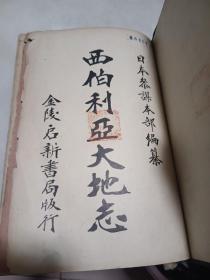 日本參謀本部編纂
西伯利亞大地志
金陵启新書局版行